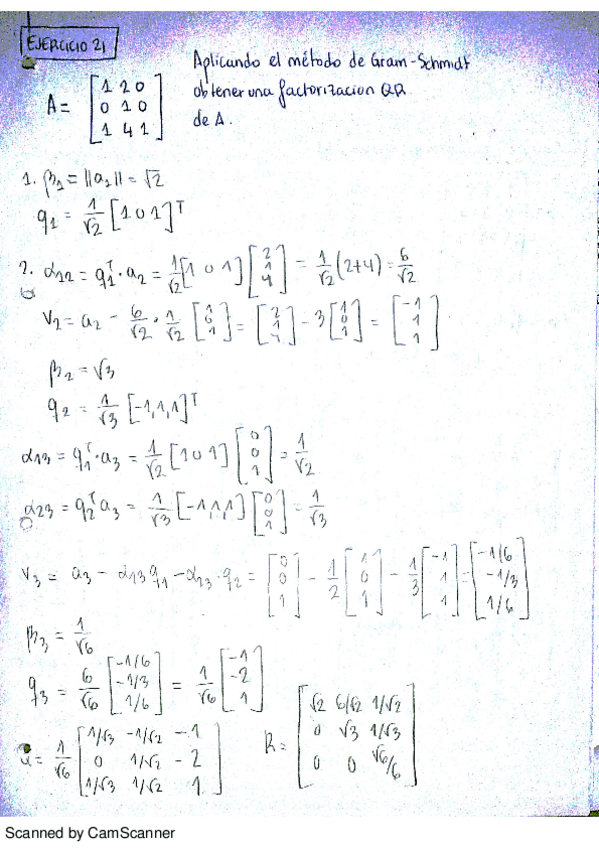 EJERCICIO 21
Aplicando el método de Gram-Schmidt
obtener una factorizacion QR
de A.
A = [1 2 0
0 1 0
1 4 1]
1. β₁ = ||a₁|| = √2
q₁ = 1/√2 [1 0 1]ᵀ
2. α₁₂ = q₁ᵀ·a₂ = 1/√2 [1 0 1] [2 1 4] = 1/√2 (2+4) = 6/√2
v₂ = a₂ - 6/√2 · 1/√2 [1 0 1] = [2 1 4] - 3 [1 0 1] = [-1 1 1]
β₂ = √3
q₂ = 1/√3 [-1,1,1]ᵀ
α₁₃ = q₁ᵀ·a₃ = 1/√2 [1 0 1] [0 0 1] = 1/√2
α₂₃ = q₂ᵀ a₃ = 1/√3 [-1,1,1] [0 0 1] = 1/√3
v₃ = a₃ - α₁₃ q₁ - α₂₃·q₂ = [0 0 1] - 1/2 [1 0 1] - 1/3 [-1 1 1] = [-1/6 -1/3 1/6]
β₃ = 1/√6
q₃ = 6/√6 [-1/6 -1/3 1/6] = 1/√6 [-1 -2 1]
= 1/√6 [1/√3 -1/√2 -1
0 1/√2 -2
1/√3 1/√2 1]
R = [√2 6/√2 1/√2
0 √3 1/√3
0 0 √6/6]
Scanned by CamScanner